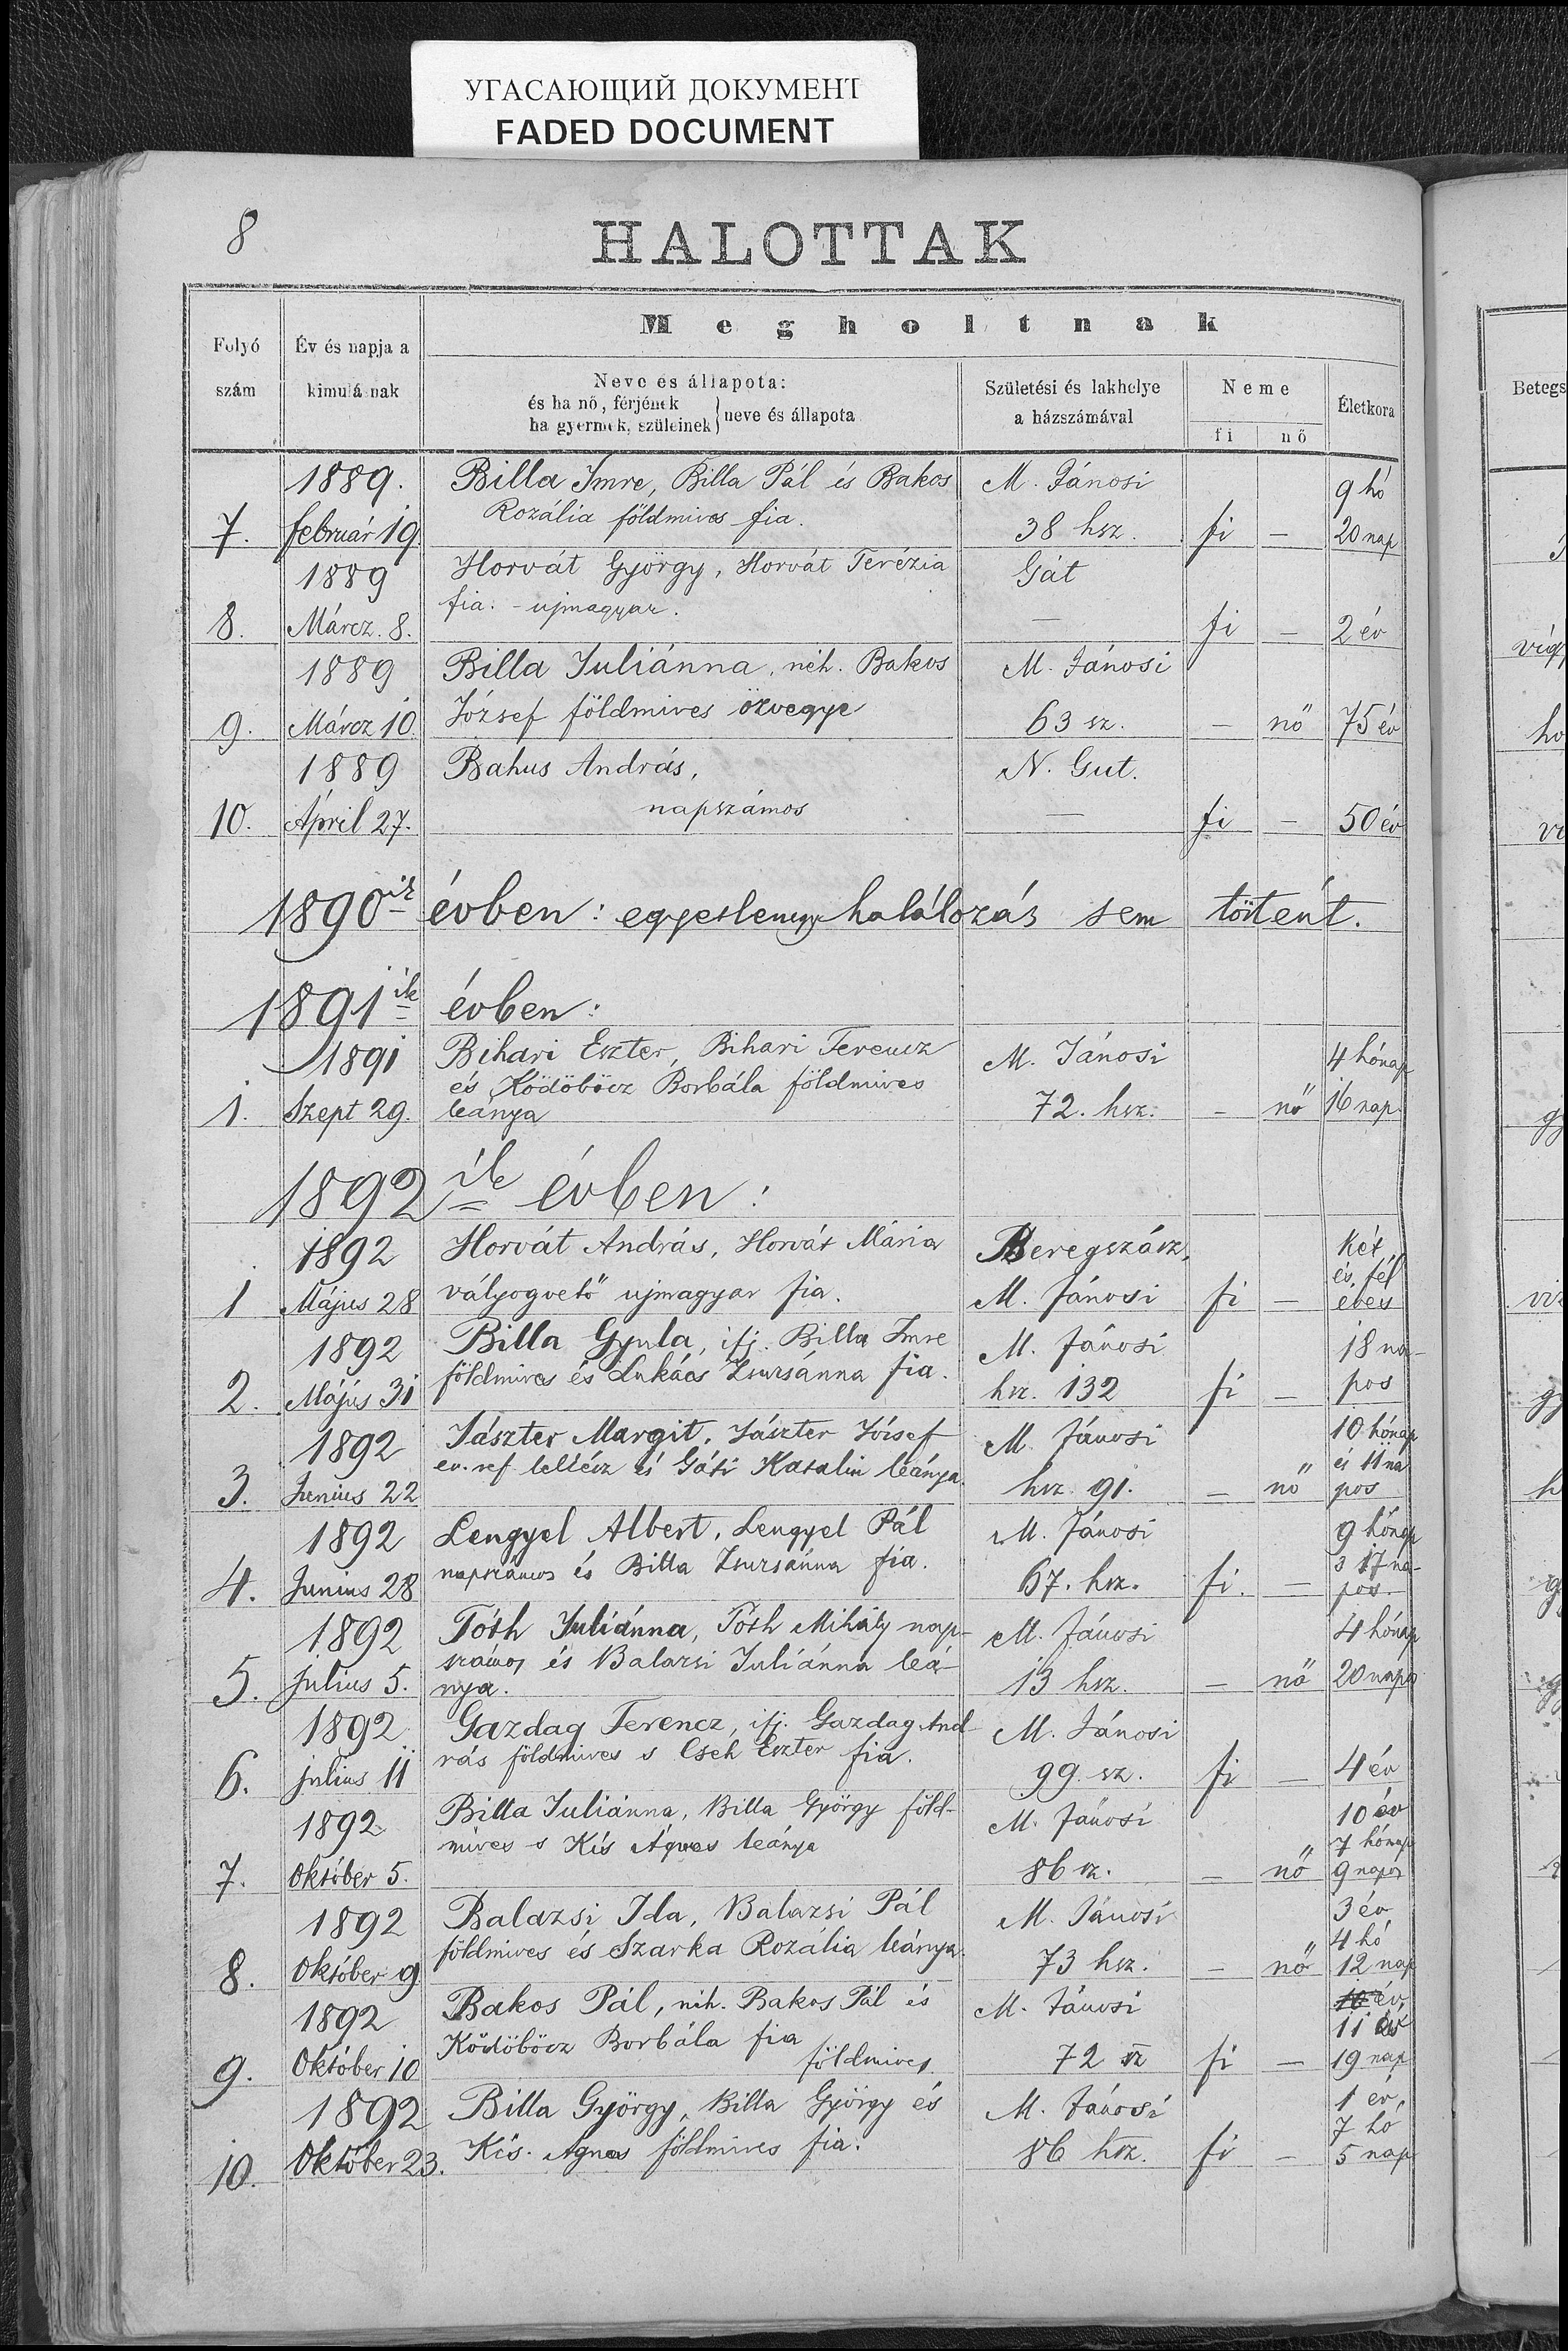 УГАСАЮЩИЙ ДОКУМЕНТ
FADED DOCUMENT
8
HALOTTAK
Folyó szám
Év és napja a kimulásnak
Megholtnak
Neve és állapota:
és ha nő, férjének
ha gyermek, szüleinek } neve és állapota
Születési és lakhelye
a házszámával
Neme
fi nő
Életkora
Betegs
1889. Billa Imre, Billa Pál és Bakos M. Jánosi 9 hó
7. február 19. Rozália földmives fia. 38 hsz. fi — 20 nap
1889 Horvát György, Horvát Terézia Gát
8. Márcz. 8. fia. - ujmagyar. — fi — 2 év
1889 Billa Juliánna, néh. Bakos M. Jánosi
9. Márcz 10. József földmives özvegye 63 sz. — nő 75 év
1889 Bahus András, N. Gut.
10. Ápril 27. napszámos — fi — 50 év
1890ik évben: egyetlenegy halálozás sem történt.
1891ik évben:
1891 Bihari Eszter, Bihari Ferencz M. Jánosi 4 hónap
és Ködöböcz Borbála földmives
1. Szept 29. leánya 72. hsz. — nő 16 nap
1892ik évben:
1892 Horvát András, Horvát Mária Beregszász, két
és fél
1 Május 28 vályogvető ujmagyar fia. M. Jánosi fi — éves
1892 Billa Gyula, ifj. Billa Imre M. Jánosi 18 na-
2. Május 31 földmives és Lukács Zsuzsánna fia. hsz. 132 fi — pos
1892 Jászter Margit, Jászter József M. Jánosi 10 hónap
ev. ref lelkész és Gáti Katalin leánya. és 11 na
3. Junius 22 hsz. 91. — nő pos
1892 Lengyel Albert, Lengyel Pál M. Jánosi 9 hónap
napszámos és Billa Zsuzsánna fia. s 17 na-
4. Junius 28 67. hsz. fi. — pos.
1892 Tóth Juliánna, Tóth Mihály nap- M. Jánosi 4 hónap
számos és Balazsi Juliánna leá-
5. julius 5. nya. 13 hsz. — nő 20 napos
1892 Gazdag Ferencz, ifj. Gazdag And- M. Jánosi
rás földmives s Cseh Eszter fia.
6. julius 11 99. sz. fi — 4 év
1892 Billa Juliánna, Billa György föld- M. Jánosi 10 év
mives s Kis Ágnes leánya 7 hónap
7. Október 5. 86 sz. — nő 9 napos
1892 Balazsi Ida, Balazsi Pál M. Jánosi 3 év
földmives és Szarka Rozália leánya. 4 hó
8. Október 9 73 hsz. — nő 12 nap
1892 Bakos Pál, néh. Bakos Pál és M. Jánosi 10 év,
Ködöböcz Borbála fia 11
9. Október 10 földmives. 72 sz fi — 19 nap
1892 Billa György, Billa György és M. Jánosi 1 év,
7 hó
10. Október 23. Kis Ágnes földmives fia. 86 hsz. fi — 5 nap